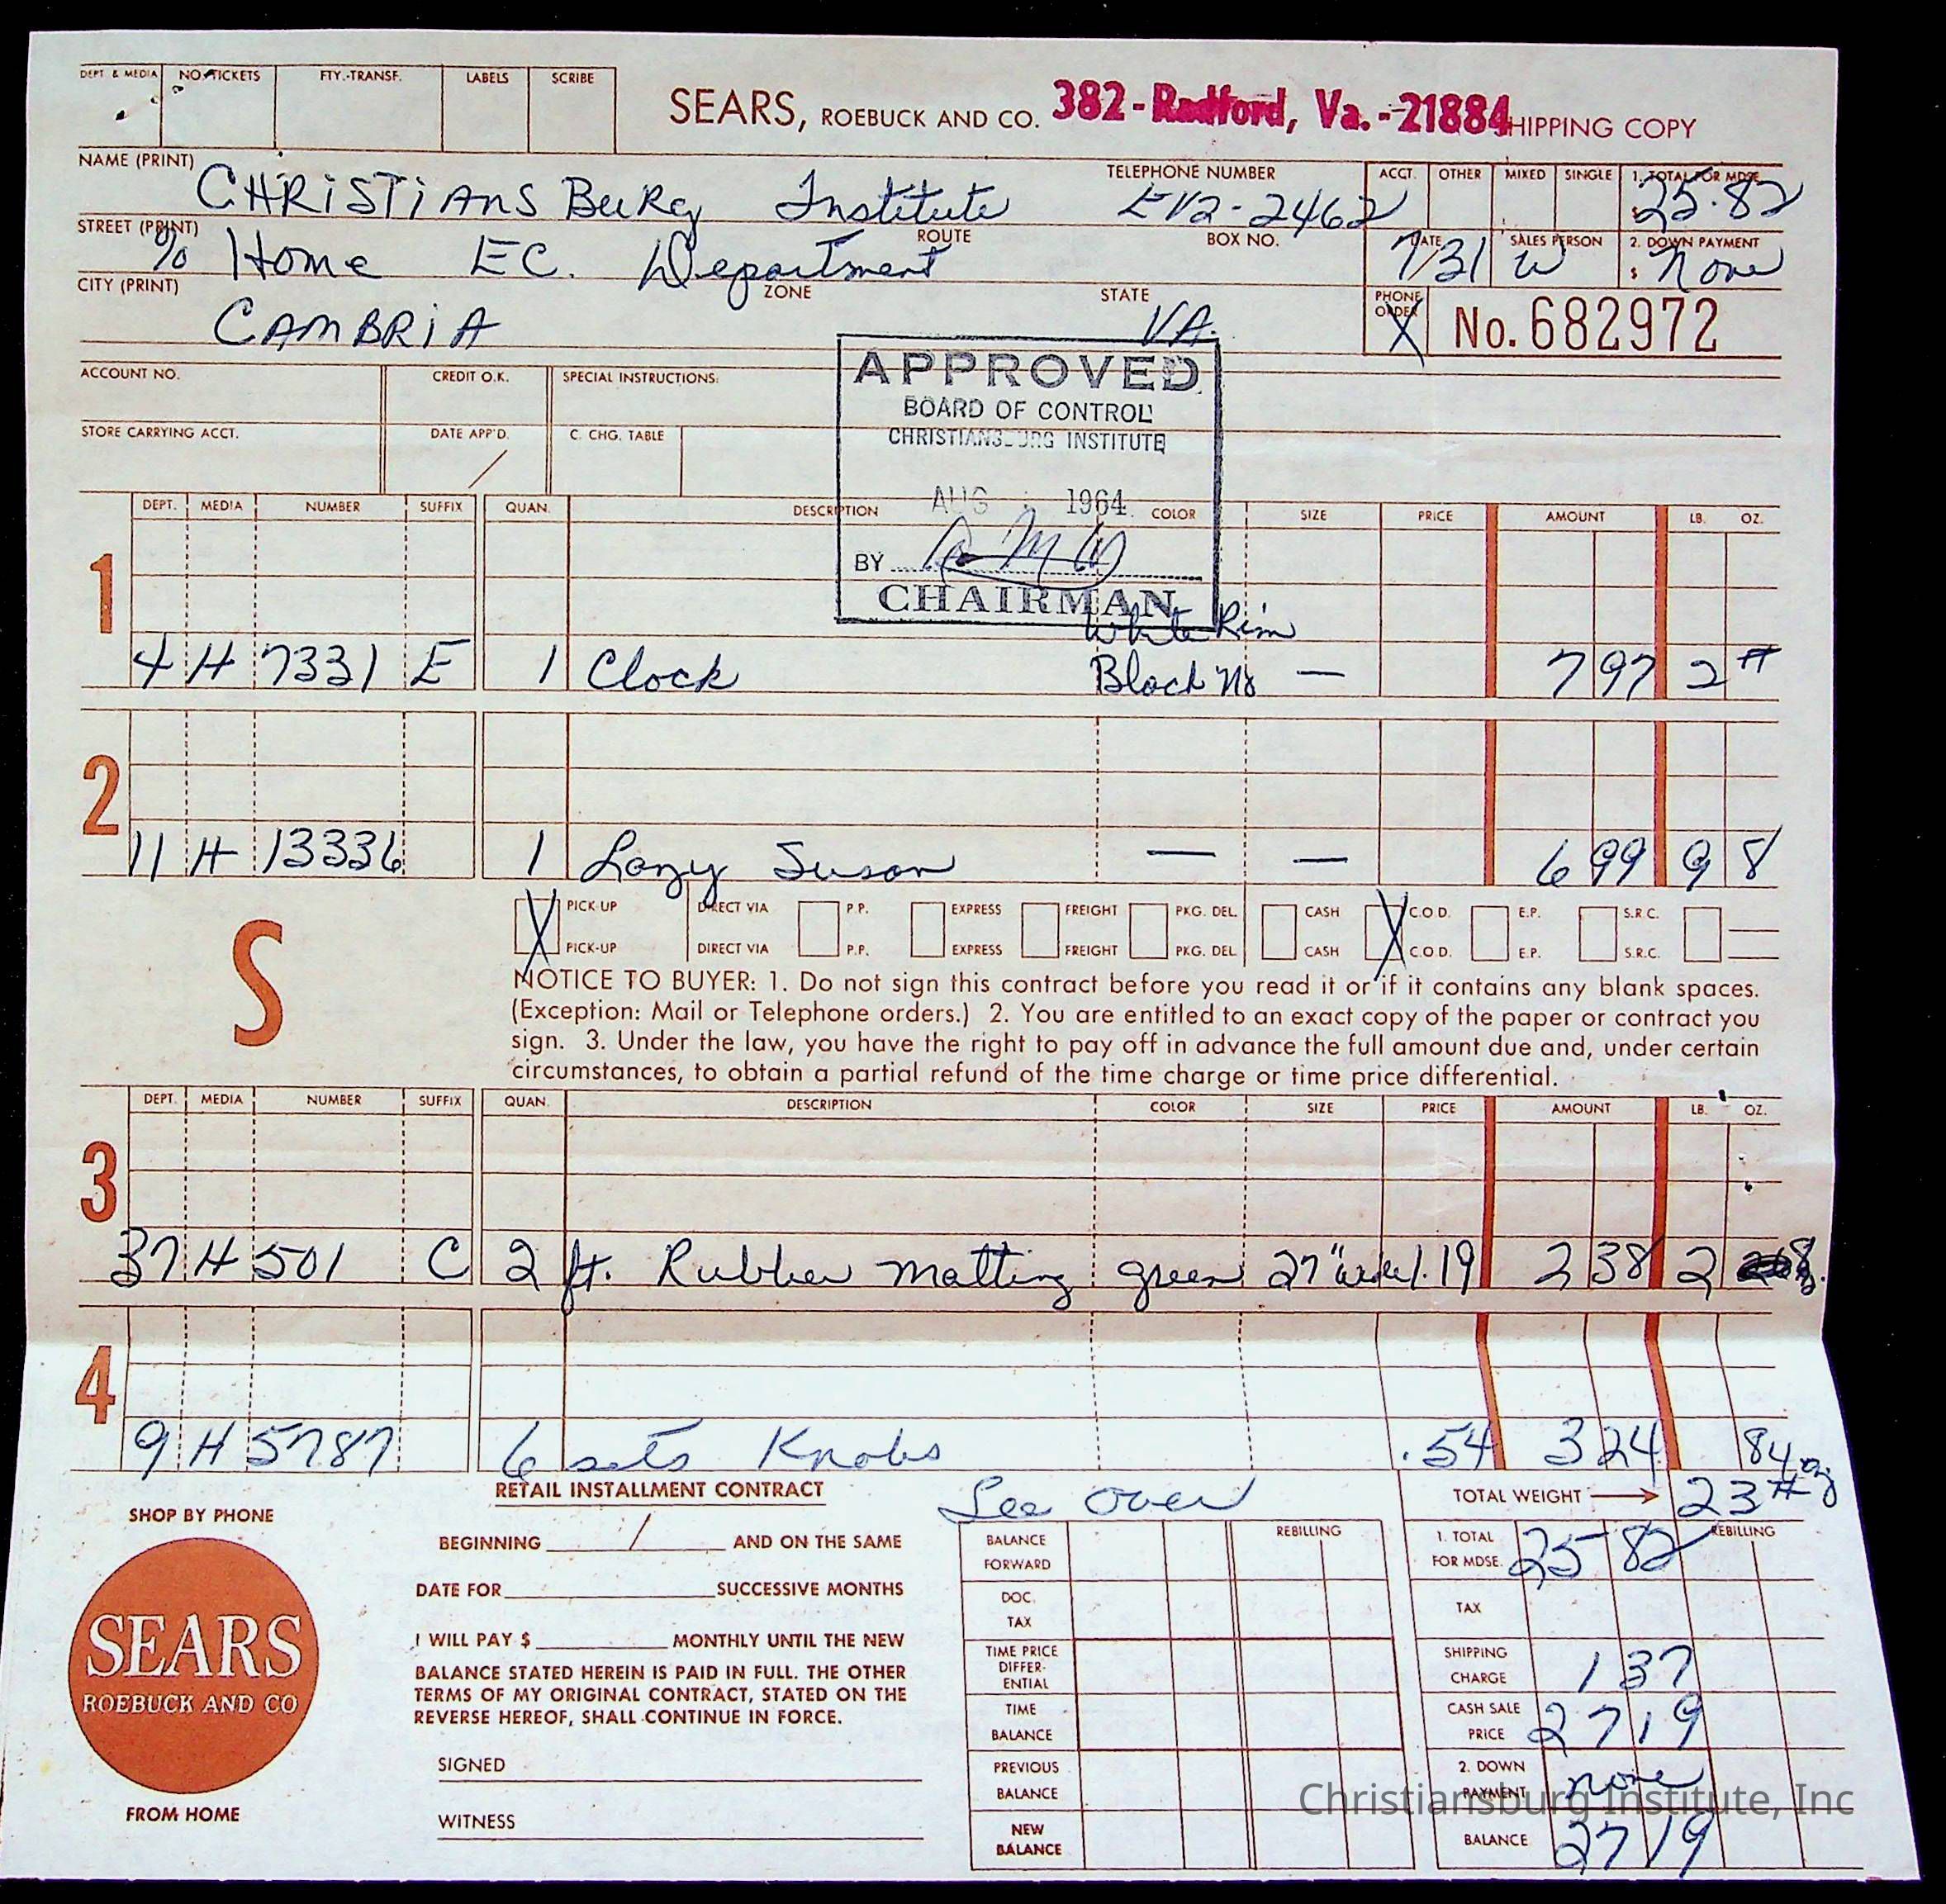 DEPT. & MEDIA NO. TICKETS FTY.-TRANSF. LABELS SCRIBE
SEARS, ROEBUCK AND CO. 382 - Radford, Va. - 21884 HIPPING COPY
NAME (PRINT) CHRISTiAnS BuRg Institute TELEPHONE NUMBER EV2-2462 ACCT. OTHER MIXED SINGLE 1. TOTAL FOR MDSE. $ 25.82
STREET (PRINT) % Home EC. Department ROUTE BOX NO. DATE 7/31 SALES PERSON W 2. DOWN PAYMENT $ None
CITY (PRINT) CAMBRiA ZONE STATE VA. PHONE ORDER X No. 682972
APPROVED
BOARD OF CONTROL
CHRISTIANSBURG INSTITUTE
AUG 1964
BY
CHAIRMAN
ACCOUNT NO. CREDIT O.K. SPECIAL INSTRUCTIONS:
STORE CARRYING ACCT. DATE APP'D. C. CHG. TABLE
DEPT. MEDIA NUMBER SUFFIX QUAN. DESCRIPTION COLOR SIZE PRICE AMOUNT LB. OZ.
1
White Rim
4 H 7331 E 1 Clock Black No — 7 97 2 #
2
11 H 13336 1 Lazy Susan — — 6 99 9 8
S
X PICK-UP DIRECT VIA P.P. EXPRESS FREIGHT PKG. DEL. CASH X C.O.D. E.P. S.R.C.
PICK-UP DIRECT VIA P.P. EXPRESS FREIGHT PKG. DEL. CASH C.O.D. E.P. S.R.C.
NOTICE TO BUYER: 1. Do not sign this contract before you read it or if it contains any blank spaces.
(Exception: Mail or Telephone orders.) 2. You are entitled to an exact copy of the paper or contract you
sign. 3. Under the law, you have the right to pay off in advance the full amount due and, under certain
circumstances, to obtain a partial refund of the time charge or time price differential.
DEPT. MEDIA NUMBER SUFFIX QUAN. DESCRIPTION COLOR SIZE PRICE AMOUNT LB. OZ.
3
37 H 501 C 2 ft. Rubber matting green 27" wide 1.19 2 38 2 8
4
9 H 5787 6 sets Knobs .54 3 24 84 oz
RETAIL INSTALLMENT CONTRACT
See over
TOTAL WEIGHT 23#
SHOP BY PHONE
SEARS
ROEBUCK AND CO
FROM HOME
BEGINNING / AND ON THE SAME
DATE FOR SUCCESSIVE MONTHS
I WILL PAY $ MONTHLY UNTIL THE NEW
BALANCE STATED HEREIN IS PAID IN FULL. THE OTHER
TERMS OF MY ORIGINAL CONTRACT, STATED ON THE
REVERSE HEREOF, SHALL CONTINUE IN FORCE.
SIGNED
WITNESS
BALANCE FORWARD REBILLING
DOC. TAX
TIME PRICE DIFFERENTIAL
TIME BALANCE
PREVIOUS BALANCE
NEW BALANCE
1. TOTAL FOR MDSE. 25 82 REBILLING
TAX
SHIPPING CHARGE 1 37
CASH SALE PRICE 27 19
2. DOWN PAYMENT none
BALANCE 27 19
Christiansburg Institute, Inc